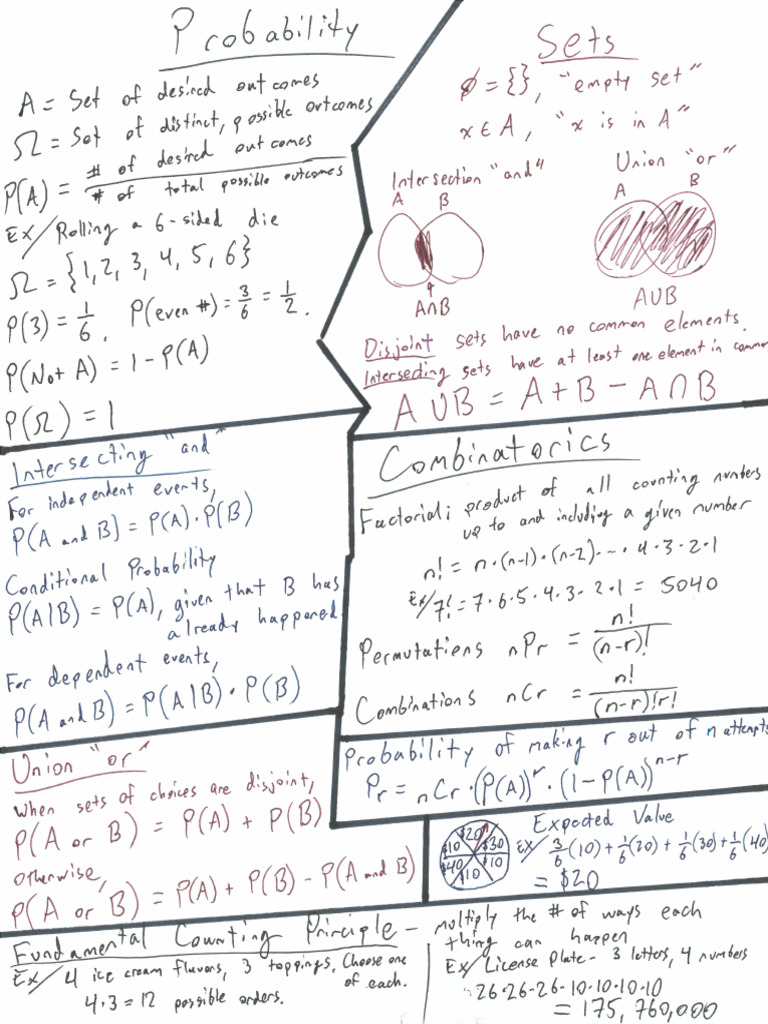 Probability
A = Set of desired outcomes
Ω = Set of distinct, possible outcomes
P(A) = # of desired outcomes / # of total possible outcomes
Ex/ Rolling a 6-sided die
Ω = {1, 2, 3, 4, 5, 6}
P(3) = 1/6, P(even #) = 3/6 = 1/2.
P(Not A) = 1 - P(A)
P(Ω) = 1
Sets
ϕ = {}, "empty set"
x ∈ A, "x is in A"
Intersection "and"
A B
A∩B
Union "or"
A B
A∪B
Disjoint sets have no common elements.
Intersecting sets have at least one element in common
A ∪ B = A + B - A ∩ B
Intersecting "and"
For independent events,
P(A and B) = P(A) · P(B)
Conditional Probability
P(A|B) = P(A), given that B has
already happened
For dependent events,
P(A and B) = P(A|B) · P(B)
Combinatorics
Factorial: product of all counting numbers
up to and including a given number
n! = n·(n-1)·(n-2)·...·4·3·2·1
Ex/ 7! = 7·6·5·4·3·2·1 = 5040
Permutations nPr = n!/(n-r)!
Combinations nCr = n!/(n-r)!r!
Union "or"
When sets of choices are disjoint,
P(A or B) = P(A) + P(B)
Otherwise,
P(A or B) = P(A) + P(B) - P(A and B)
Probability of making r out of n attempts
Pr = nCr · (P(A))^r · (1-P(A))^n-r
Expected Value
$20
$10 $30
$40 $10
$10
Ex/ 3/6(10) + 1/6(20) + 1/6(30) + 1/6(40)
= $20
Fundamental Counting Principle - multiply the # of ways each
thing can happen
Ex/ 4 ice cream flavors, 3 toppings. Choose one
of each.
4·3 = 12 possible orders.
Ex/ License plate - 3 letters, 4 numbers
26·26·26·10·10·10·10
= 175,760,000